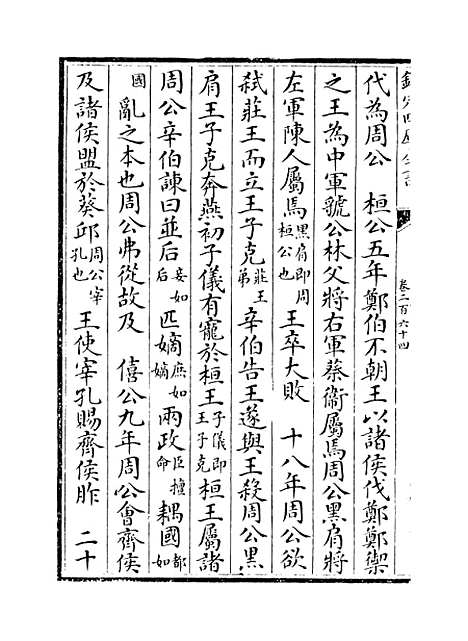 欽定四庫全書
卷二百六十四
代為周公　桓公五年鄭伯不朝王以諸侯伐鄭鄭禦
之王為中軍虢公林父將右軍蔡衞屬焉周公黑肩將
左軍陳人屬焉黑肩即周桓公也王卒大敗　十八年周公欲
弑莊王而立王子克莊王弟辛伯告王遂與王殺周公黑
肩王子克奔燕初子儀有寵於桓王子儀即王子克桓王屬諸
周公辛伯諫曰並后妾如后匹嫡庶如嫡兩政臣擅命耦國都如
國亂之本也周公弗從故及　僖公九年周公會齊侯
及諸侯盟於葵邱周公宰孔也王使宰孔賜齊侯胙　二十